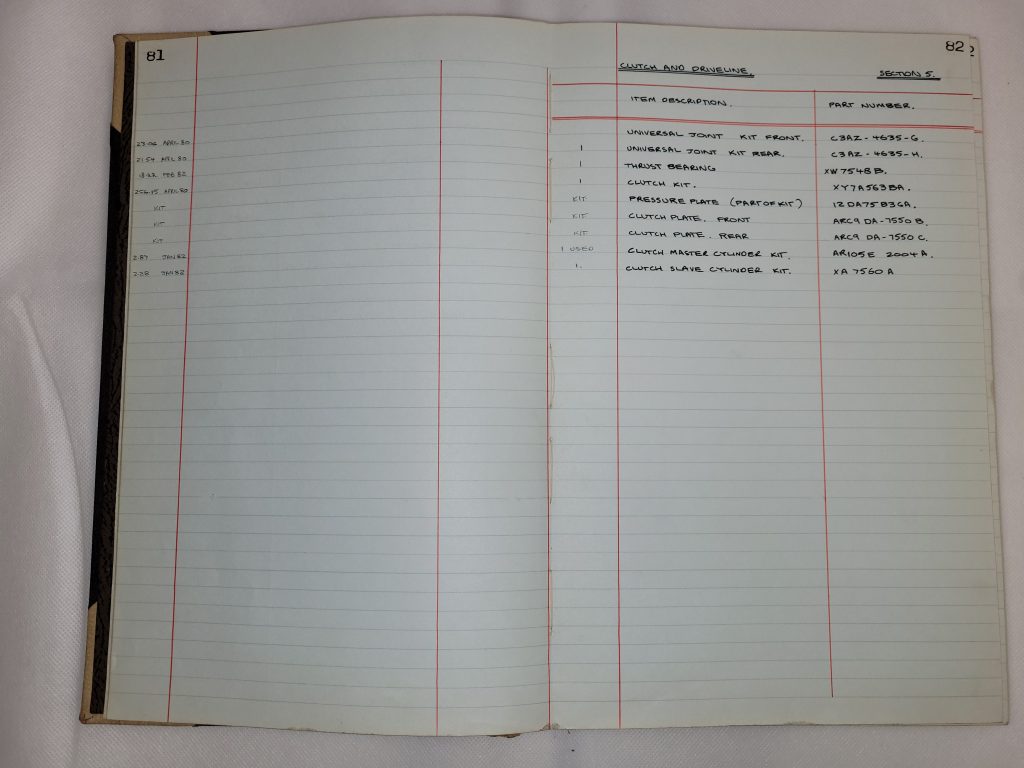 81
23.06 APRIL 80
21.54 APRIL 80
18.22 FEB 82
256.15 APRIL 80
KIT
KIT
KIT
2.87 JAN 82
2.28 JAN 82
82
CLUTCH AND DRIVELINE. SECTION 5.
ITEM DESCRIPTION. PART NUMBER.
UNIVERSAL JOINT KIT FRONT. C3AZ-4635-G.
1 UNIVERSAL JOINT KIT REAR. C3AZ-4635-H.
1 THRUST BEARING XW7548B.
1 CLUTCH KIT. XY7A563BA.
KIT PRESSURE PLATE (PART OF KIT) 12DA7563GA.
KIT CLUTCH PLATE. FRONT ARC9 DA-7550 B.
KIT CLUTCH PLATE. REAR ARC9 DA-7550 C.
1 USED CLUTCH MASTER CYLINDER KIT. AR105E 2004A.
1. CLUTCH SLAVE CYLINDER KIT. XA 7560 A